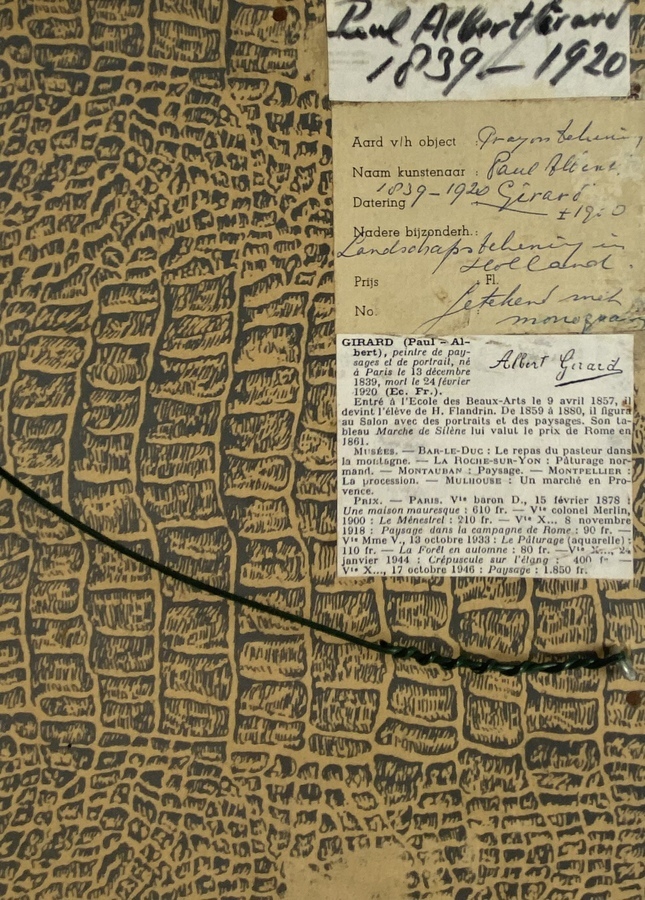 Paul Albert Girard
1839 - 1920
Aard v/h object : Crayontekening
Naam kunstenaar : Paul Albert
1839-1920 Girard
Datering ± 1900
Nadere bijzonderh.:
Landschapstekening in
Holland.
Prijs : Fl.
getekend met
No. : monogram
GIRARD (Paul - Al-
bert), peintre de pay-
sages et de portrait, né
à Paris le 13 décembre
1839, mort le 24 février
1920 (Ec. Fr.).
Albert Girard
Entré à l'Ecole des Beaux-Arts le 9 avril 1857, il
devint l'élève de H. Flandrin. De 1859 à 1880, il figura
au Salon avec des portraits et des paysages. Son ta-
bleau Marche de Silène lui valut le prix de Rome en
1861.
MUSÉES. — BAR-LE-DUC : Le repas du pasteur dans
la montagne. — LA ROCHE-SUR-YON : Pâturage nor-
mand. — MONTAUBAN : Paysage. — MONTPELLIER :
La procession. — MULHOUSE : Un marché en Pro-
vence.
PRIX. — PARIS. Vte baron D., 15 février 1878 :
Une maison mauresque : 610 fr. — Vte colonel Merlin,
1900 : Le Ménestrel : 210 fr. — Vte X... 8 novembre
1918 : Paysage dans la campagne de Rome : 90 fr. —
Vte Mme V., 13 octobre 1933 : Le Pâturage (aquarelle) :
110 fr. — La Forêt en automne : 80 fr. — Vte X..., 24
janvier 1944 : Crépuscule sur l'étang : 400 fr —
Vte X..., 17 octobre 1946 : Paysage : 1.850 fr.